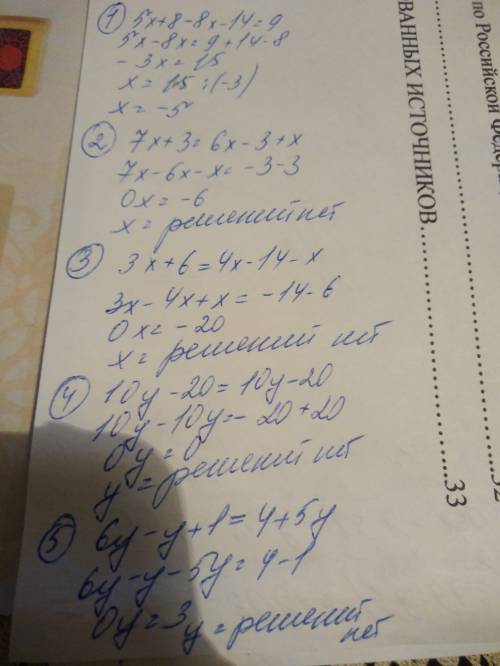 1) 5x+8-8x-14=9
5x-8x=9+14-8
-3x=15
x=15:(-3)
x=-5
2) 7x+3=6x-3+x
7x-6x-x=-3-3
0x=-6
x=решений нет
3) 3x+6=4x-14-x
3x-4x+x=-14-6
0x=-20
x=решений нет
4) 10y-20=10y-20
10y-10y=-20+20
0y=0
y=решений нет
5) 6y-y+1=4+5y
6y-y-5y=4-1
0y=3 y=решений
нет
по Российской Федера
ОВАННЫХ ИСТОЧНИКОВ
33